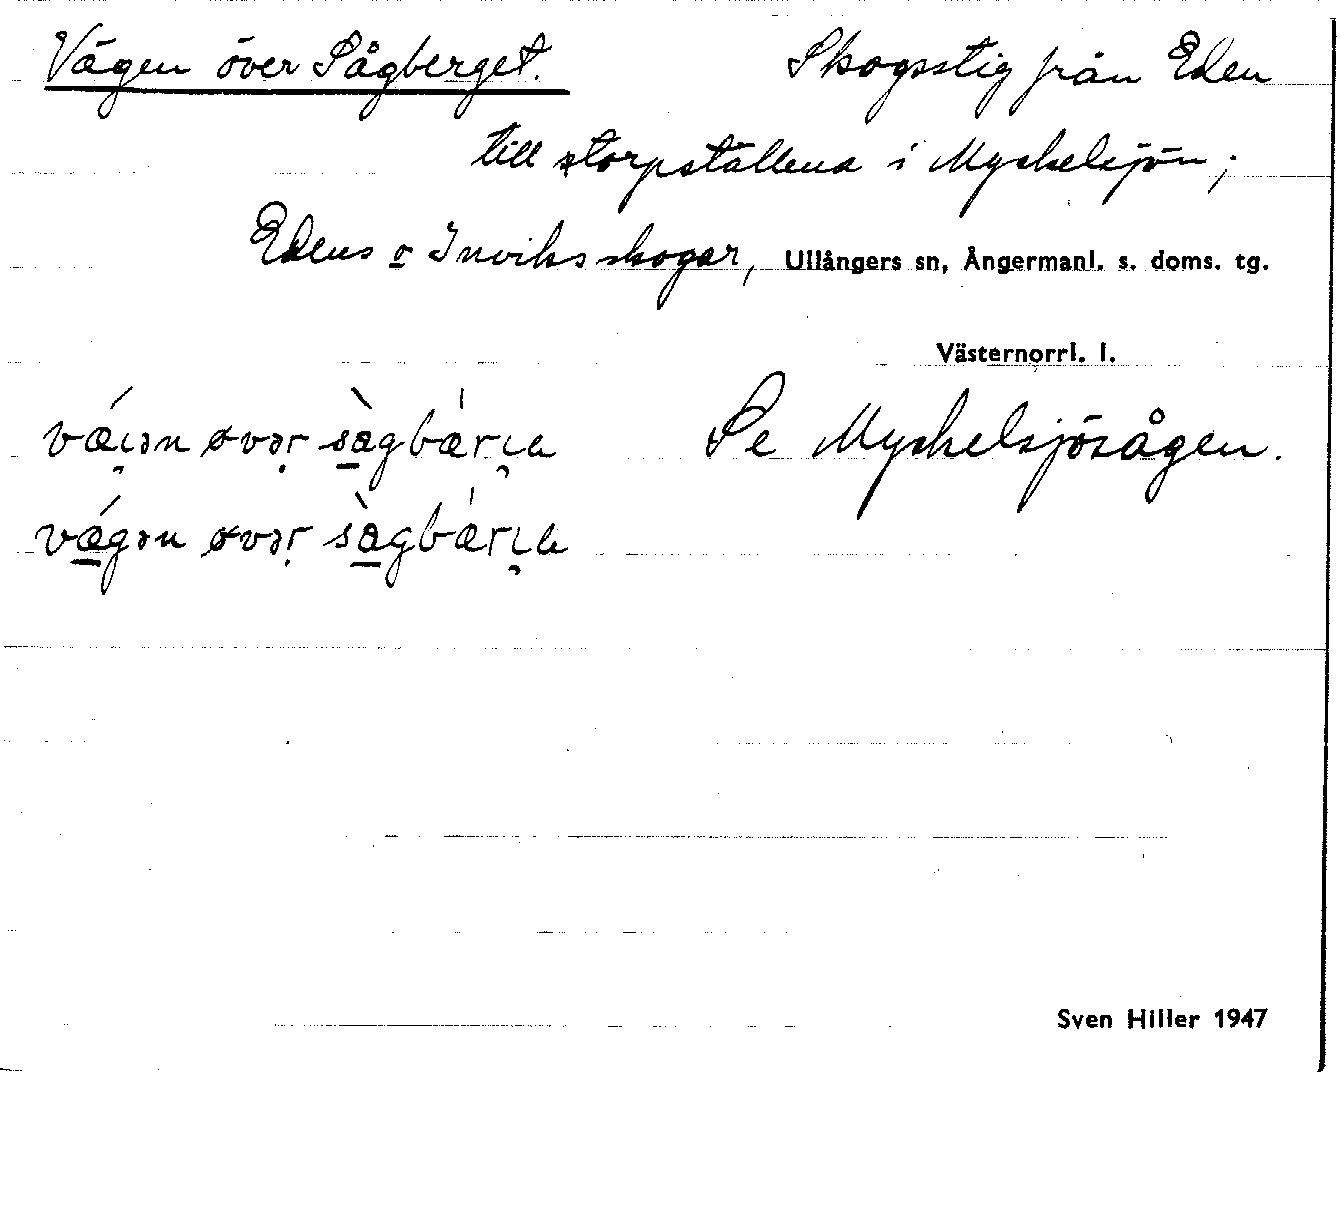 Vägen över Sågberget. Skogsstig från Eden
till storpställena i Myckelsjön;
Edens o Inviksskogar, Ullångers sn, Ångermanl. s. doms. tg.
Västernorrl. l.
Se Myckelsjösågen.
Sven Hiller 1947